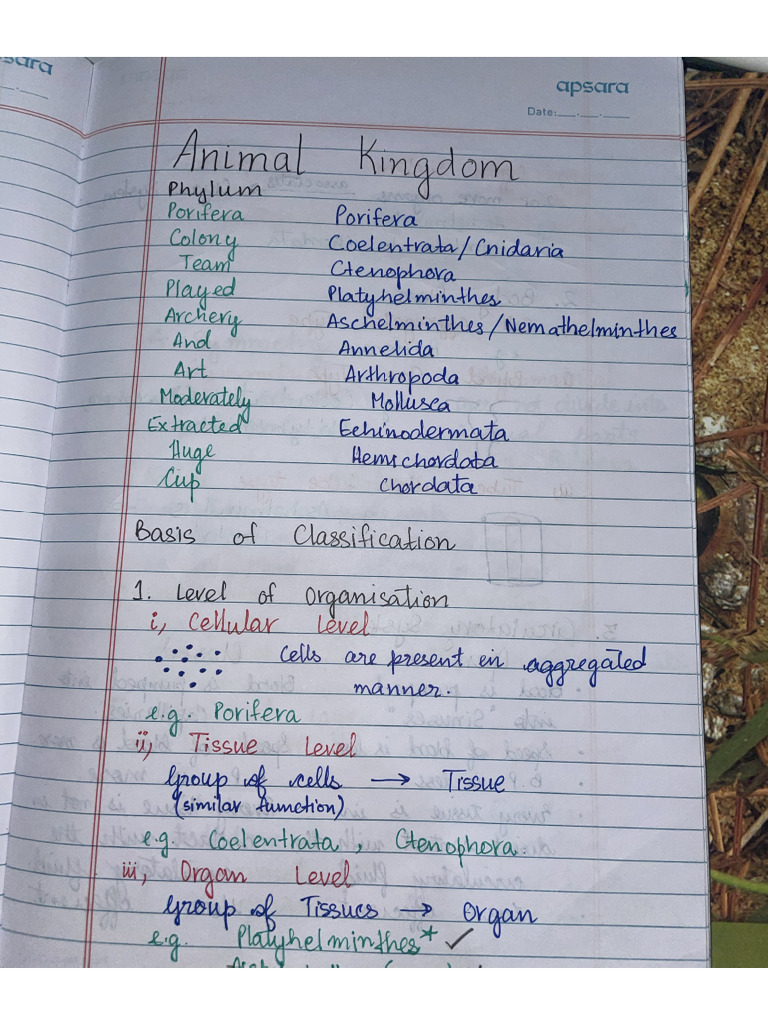 apsara
Date:__.__.__
Animal Kingdom
Phylum
Porifera Porifera
Colony Coelentrata / Cnidaria
Team Ctenophora
Played Platyhelminthes
Archery Aschelminthes / Nemathelminthes
And Annelida
Art Arthropoda
Moderately Mollusca
Extracted Echinodermata
Huge Hemichordata
Cup Chordata
Basis of Classification
1. Level of Organisation
i, Cellular Level
Cells are present in aggregated
manner.
e.g. Porifera
ii, Tissue Level
Group of cells → Tissue
(similar function)
e.g. Coelentrata, Ctenophora.
iii, Organ Level
Group of Tissues → Organ
e.g. Platyhelminthes* ✓